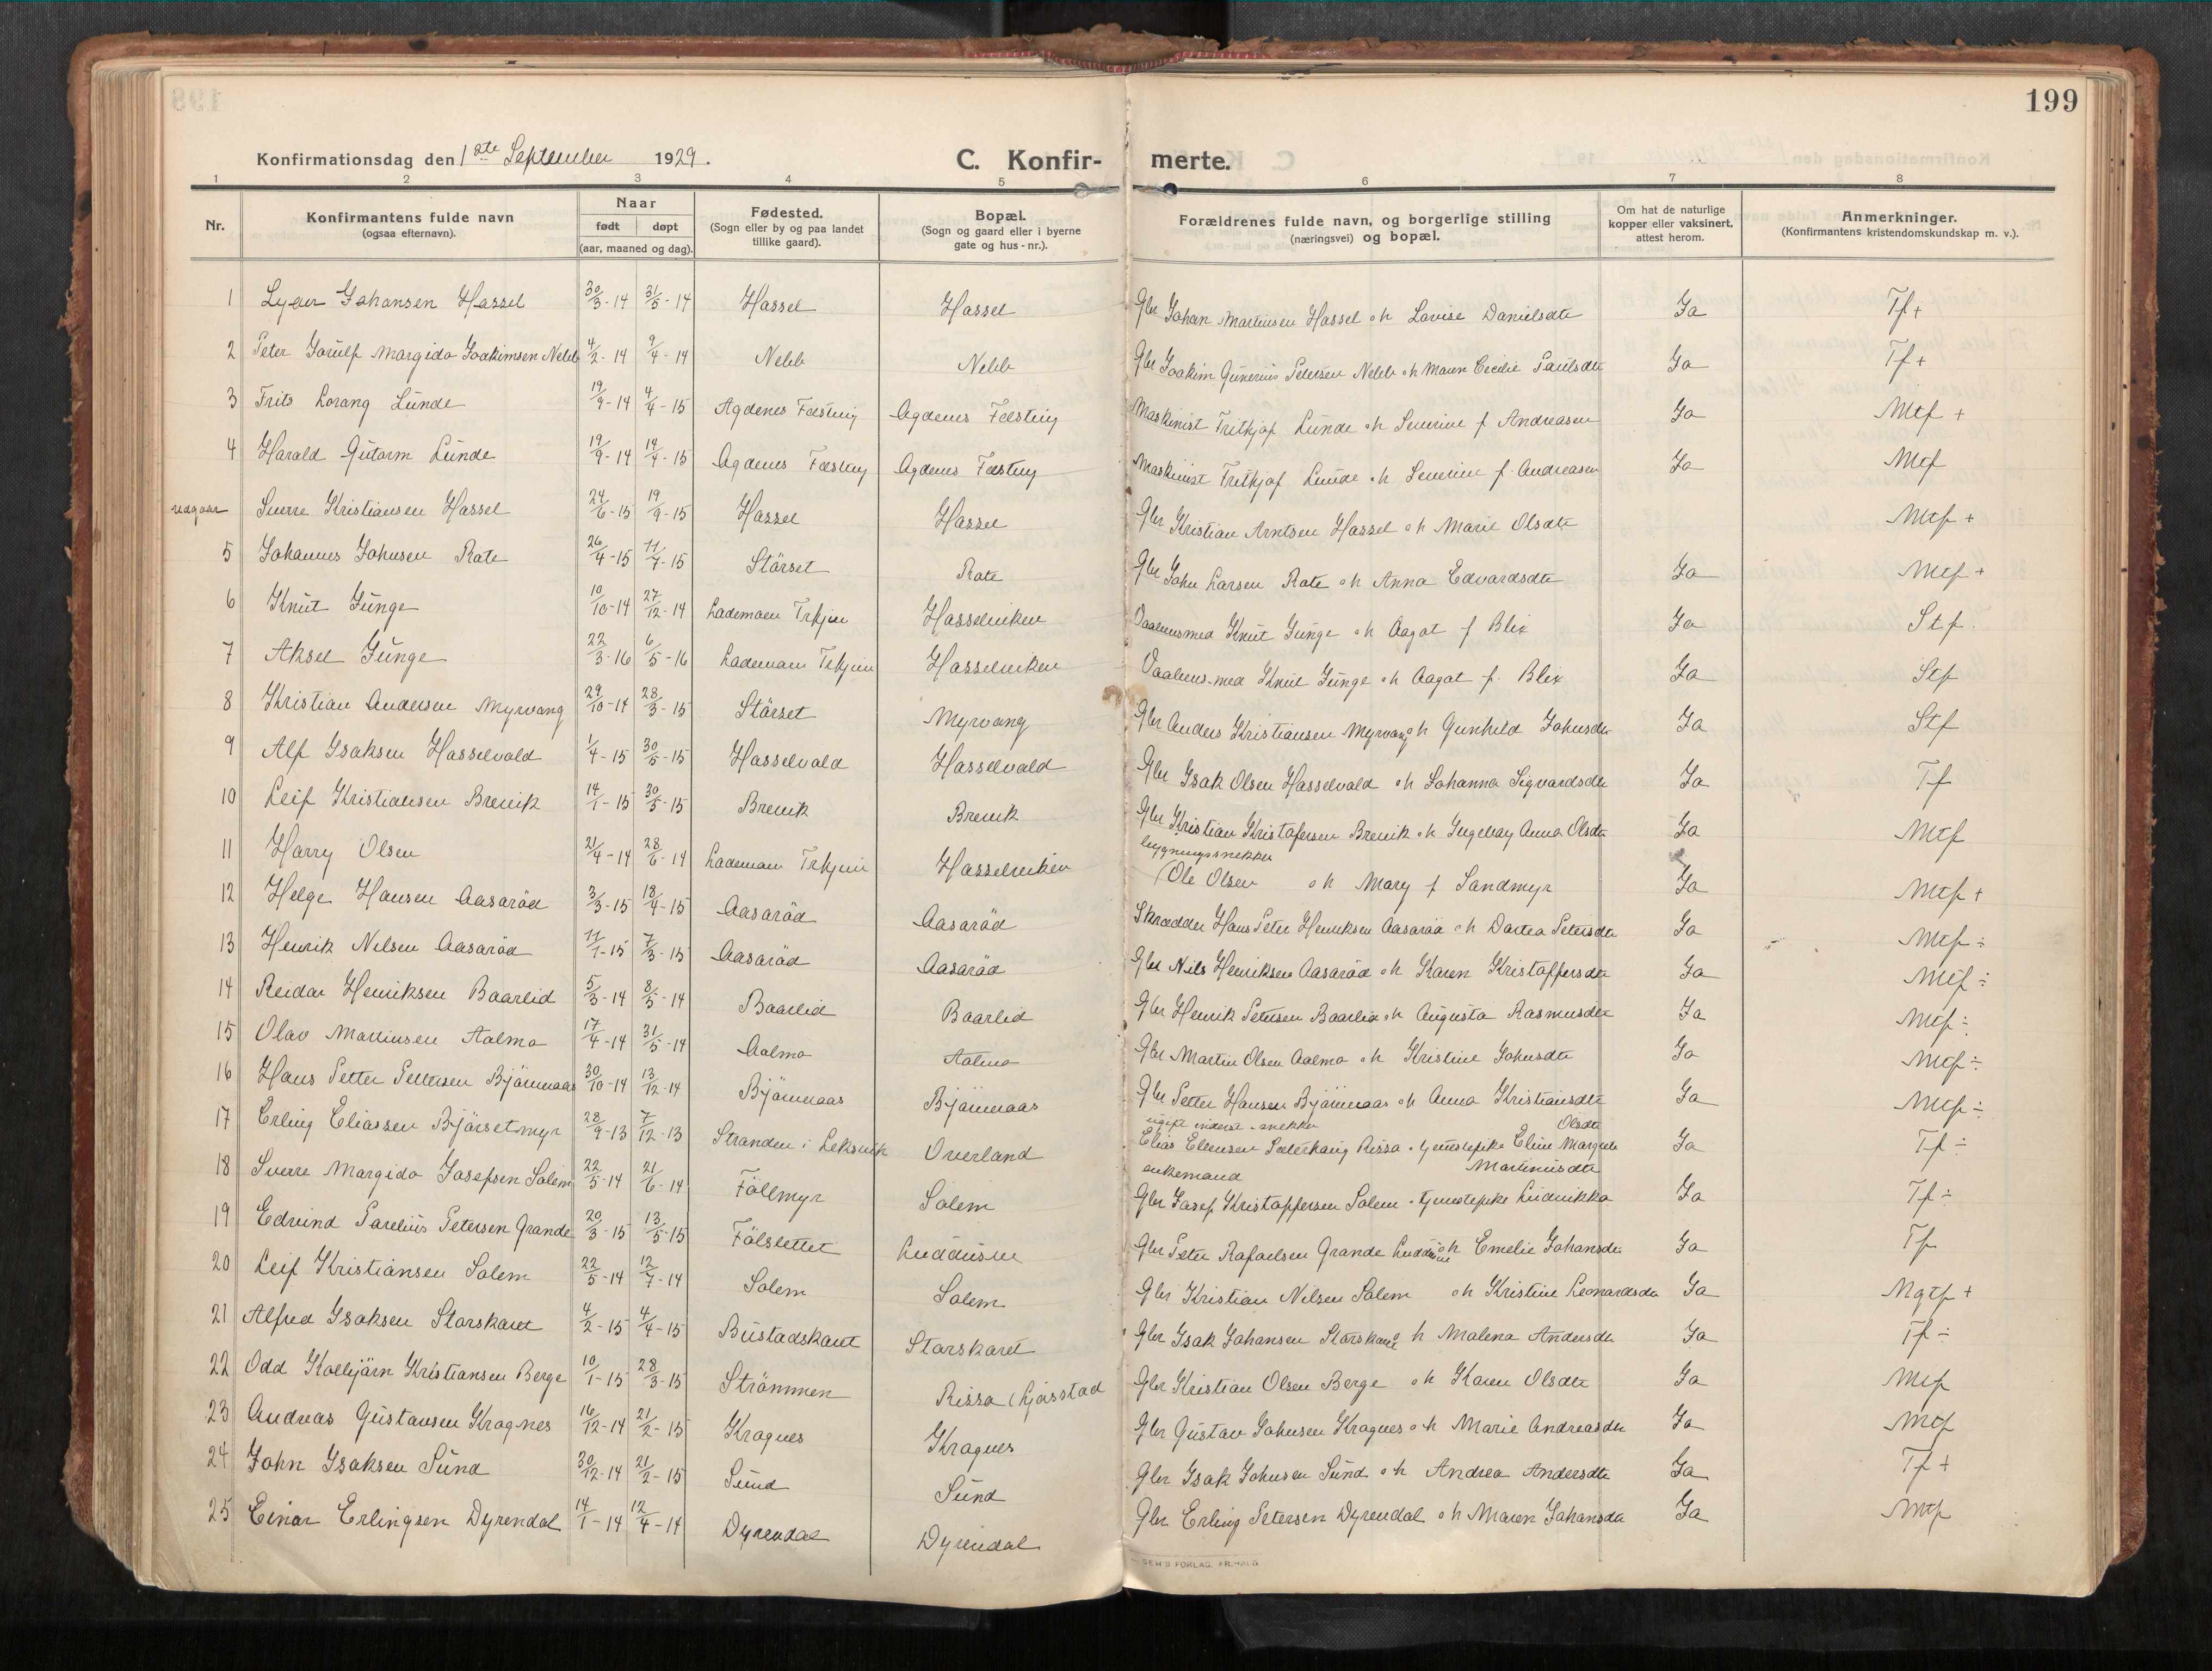 199
Konfirmationsdag den 1ste September 1929.
C. Konfir- merte.
1 2 3 4 5 6 7 8
Nr.
Konfirmantens fulde navn
(ogsaa efternavn).
Naar
født døpt
(aar, maaned og dag).
Fødested.
(Sogn eller by og paa landet
tillike gaard).
Bopæl.
(Sogn og gaard eller i byerne
gate og hus-nr.).
Forældrenes fulde navn, og borgerlige stilling
(næringsvei) og bopæl.
Om hat de naturlige
kopper eller vaksinert,
attest herom.
Anmerkninger.
(Konfirmantens kristendomskundskap m. v.).
1 Lyder Johansen Hassel 30/3-14 31/5-14 Hassel Hassel Gbr Johan Martinsen Hassel oh Lovise Danielsdtr Ja Tf+
2 Peter Jorulf Margido Joakimsen Nebb 4/2-14 9/4-14 Nebb Nebb Gbr Joakim Gunerius Petersen Nebb oh Maren Cecilie Paulsdtr Ja Tf+
3 Frits Lorang Lunde 19/9-14 4/4-15 Agdenes Fæstnig Agdenes Fæstnig Maskinist Fritjof Lunde oh Severine f Andreasen Ja Mtf +
4 Harald Gutorm Lunde 19/9-14 14/4-15 Agdenes Fæstng Agdenes Fæstng Maskinist Fritjof Lunde oh Severine f. Andreasen Ja Mtf
udgaar Sverre Kristiansen Hassel 24/6-15 19/9-15 Hassel Hassel Gbr Kristian Arntsen Hassel oh Marie Olsdtr Mtf +
5 Johannes Johnsen Rate 26/4-15 11/7-15 Störset Rate Gbr John Larsen Rate oh Anna Edvardsdtr Ja Mtf +
6 Knut Junge 10/10-14 27/12-14 Lademoen Trhjem Hasselviken Vaabensmed Knut Junge oh Aagot f Blix Ja Stf.
7 Aksel Junge 22/3-16 6/5-16 Lademoen Trhjem Hasselviken Vaabens.med Knut Junge oh Aagot f. Blix Ja Stf
8 Kristian Andersen Myrvang 29/10-14 28/3-15 Störset Myrvang Gbr Anders Kristiansen Myrvang oh Gunhild Johnsdtr Ja Stf
9 Alf Isaksen Hasselvold 1/4-15 30/5-15 Hasselvold Hasselvold Gbr Isak Olsen Hasselvold oh Johanna Sigvardsdtr Ja Tf
10 Leif Kristiansen Brevik 14/1-15 30/5-15 Brevik Brevik Gbr Kristian Kristofersen Brevik oh Ingeborg Anna Olsdtr Ja Mtf
11 Harry Olsen 21/4-14 28/6-14 Lademoen Trhjem Hasselviken bygningssnekker
Ole Olsen oh Mary f Sandmyr Ja Mtf +
12 Helge Hansen Aasaröd 3/3-15 18/4-15 Aasaröd Aasaröd Skrædder Hans Peter Henriksen Aasaröd oh Dortea Petersdtr Ja Mtf ÷
13 Henrik Nilsen Aasaröd 11/1-15 7/3-15 Aasaröd Aasaröd Gbr Nils Henriksen Aasaröd oh Karen Kristoffersdtr Ja Mtf ÷
14 Reidar Henriksen Baarlid 5/3-14 8/5-14 Baarlid Baarlid Gbr Henrik Petersen Baarlid oh Augusta Rasmusdtr Ja Mtf ÷
15 Olav Martinsen Aalmo 17/4-14 31/5-14 Aalmo Aalmo Gbr Martin Olsen Aalmo oh Kristine Johnsdtr Ja Mtf ÷
16 Hans Petter Pettersen Björnnaas 30/10-14 13/12-14 Björnnaas Björnnaas Gbr Petter Hansen Björnnaas oh Anna Kristiansdtr Ja Mtf ÷
17 Erling Eliassen Björsetmyr 28/9-13 7/12-13 Stranden i Leksvik Overland ugift inderst - snekker Olsdtr
Elias Ellensen Sæterhaug Rissa - tjenestepike Eline Margrete Ja Tf ÷
18 Sverre Margido Josefsen Solem 22/5-14 21/6-14 Föllmyr Solem enkemand Martinusdtr
Gbr Josef Kristoffersen Solem - tjenestepike Ludvikka Ja Tf ÷
19 Edvind Parelius Petersen Grande 20/3-15 13/5-15 Fölslettet Luddusne Gbr Peter Rafaelsen Grande oh Emelie Johansdtr Ja Tf
20 Leif Kristiansen Solem 22/5-14 12/7-14 Solem Solem Gbr Kristian Nilsen Solem oh Kristine Leonardsdtr Ja Mgtf +
21 Alfred Isaksen Storskaret 4/2-15 4/4-15 Bustadskaret Storskaret Gbr Isak Johansen Storskaret oh Malena Andersdtr Ja Tf ÷
22 Odd Kolbjörn Kristiansen Berge 10/1-15 28/3-15 Strömmen Rissa (Ljösstad Gbr Kristian Olsen Berge oh Karen Olsdtr Ja Mtf
23 Andreas Gustavsen Kragnes 16/12-14 21/2-15 Kragnes Kragnes Gbr Gustav Johnsen Kragnes oh Marie Andreasdtr Ja Mtf
24 John Isaksen Sund 30/12-14 21/2-15 Sund Sund Gbr Isak Johnsen Sund oh Andrea Andersdtr Ja Tf +
25 Einar Erlingsen Dyrendal 14/1-14 12/4-14 Dyrendal Dyrendal Gbr Erling Petersen Dyrendal oh Maren Johansdtr Ja Mtf
SEM'S FORLAG, FR.HALD